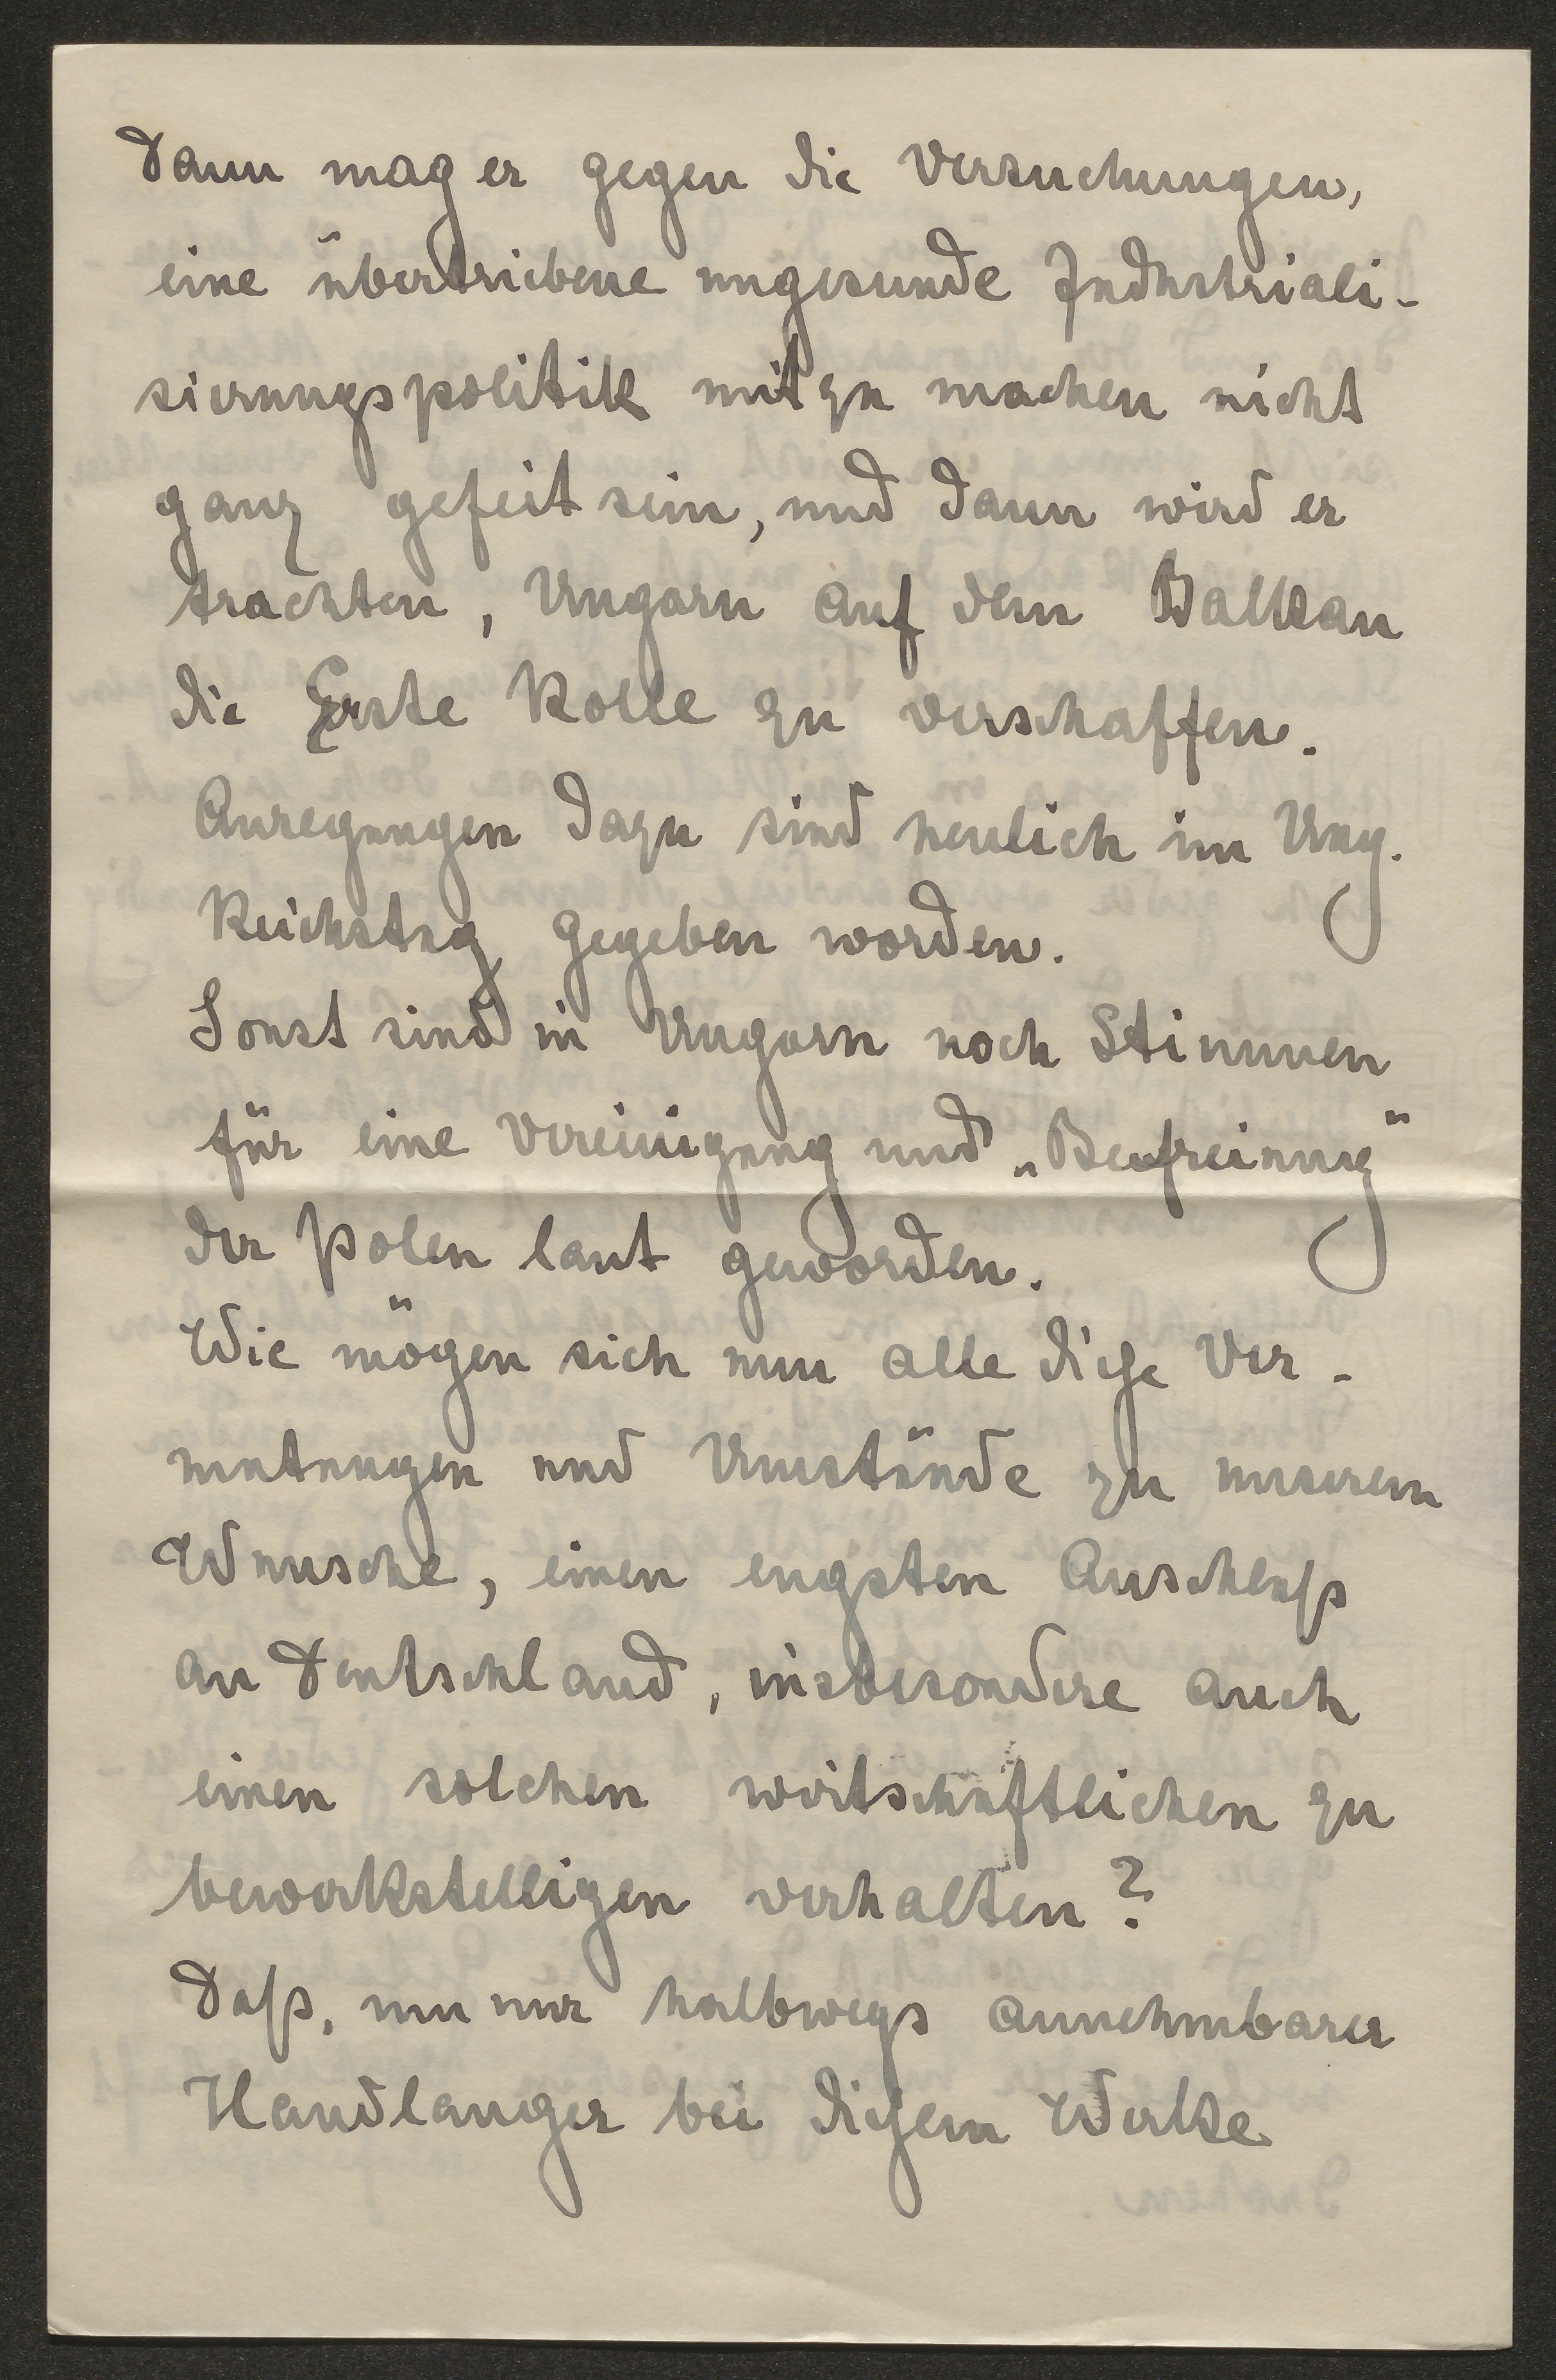 Dann mag er gegen die Versuchungen,
eine übertriebene ungesunde Industriali-
sierungspolitik mitzu machen nicht
ganz gefeit sein, und dann wird er
trachten, Ungarn auf dem Balkan
die Erste Rolle zu verschaffen.
Anregungen dazu sind neulich im Ung.
Reichstag gegeben worden.
Sonst sind in Ungarn noch Stimmen
für eine Vereinigung und „Befreiung"
der Polen laut geworden.
Wie mögen sich nun alle diese Ver-
mutungen und Umstände zu unserem
Wunsche, einen engsten Anschluß
an Deutschland, insbesondere auch
einen solchen wirtschaftlichen zu
bewerkstelligen verhalten?
Daß, nun nur halbwegs annehmbarer
Handlanger bei diesem Werke